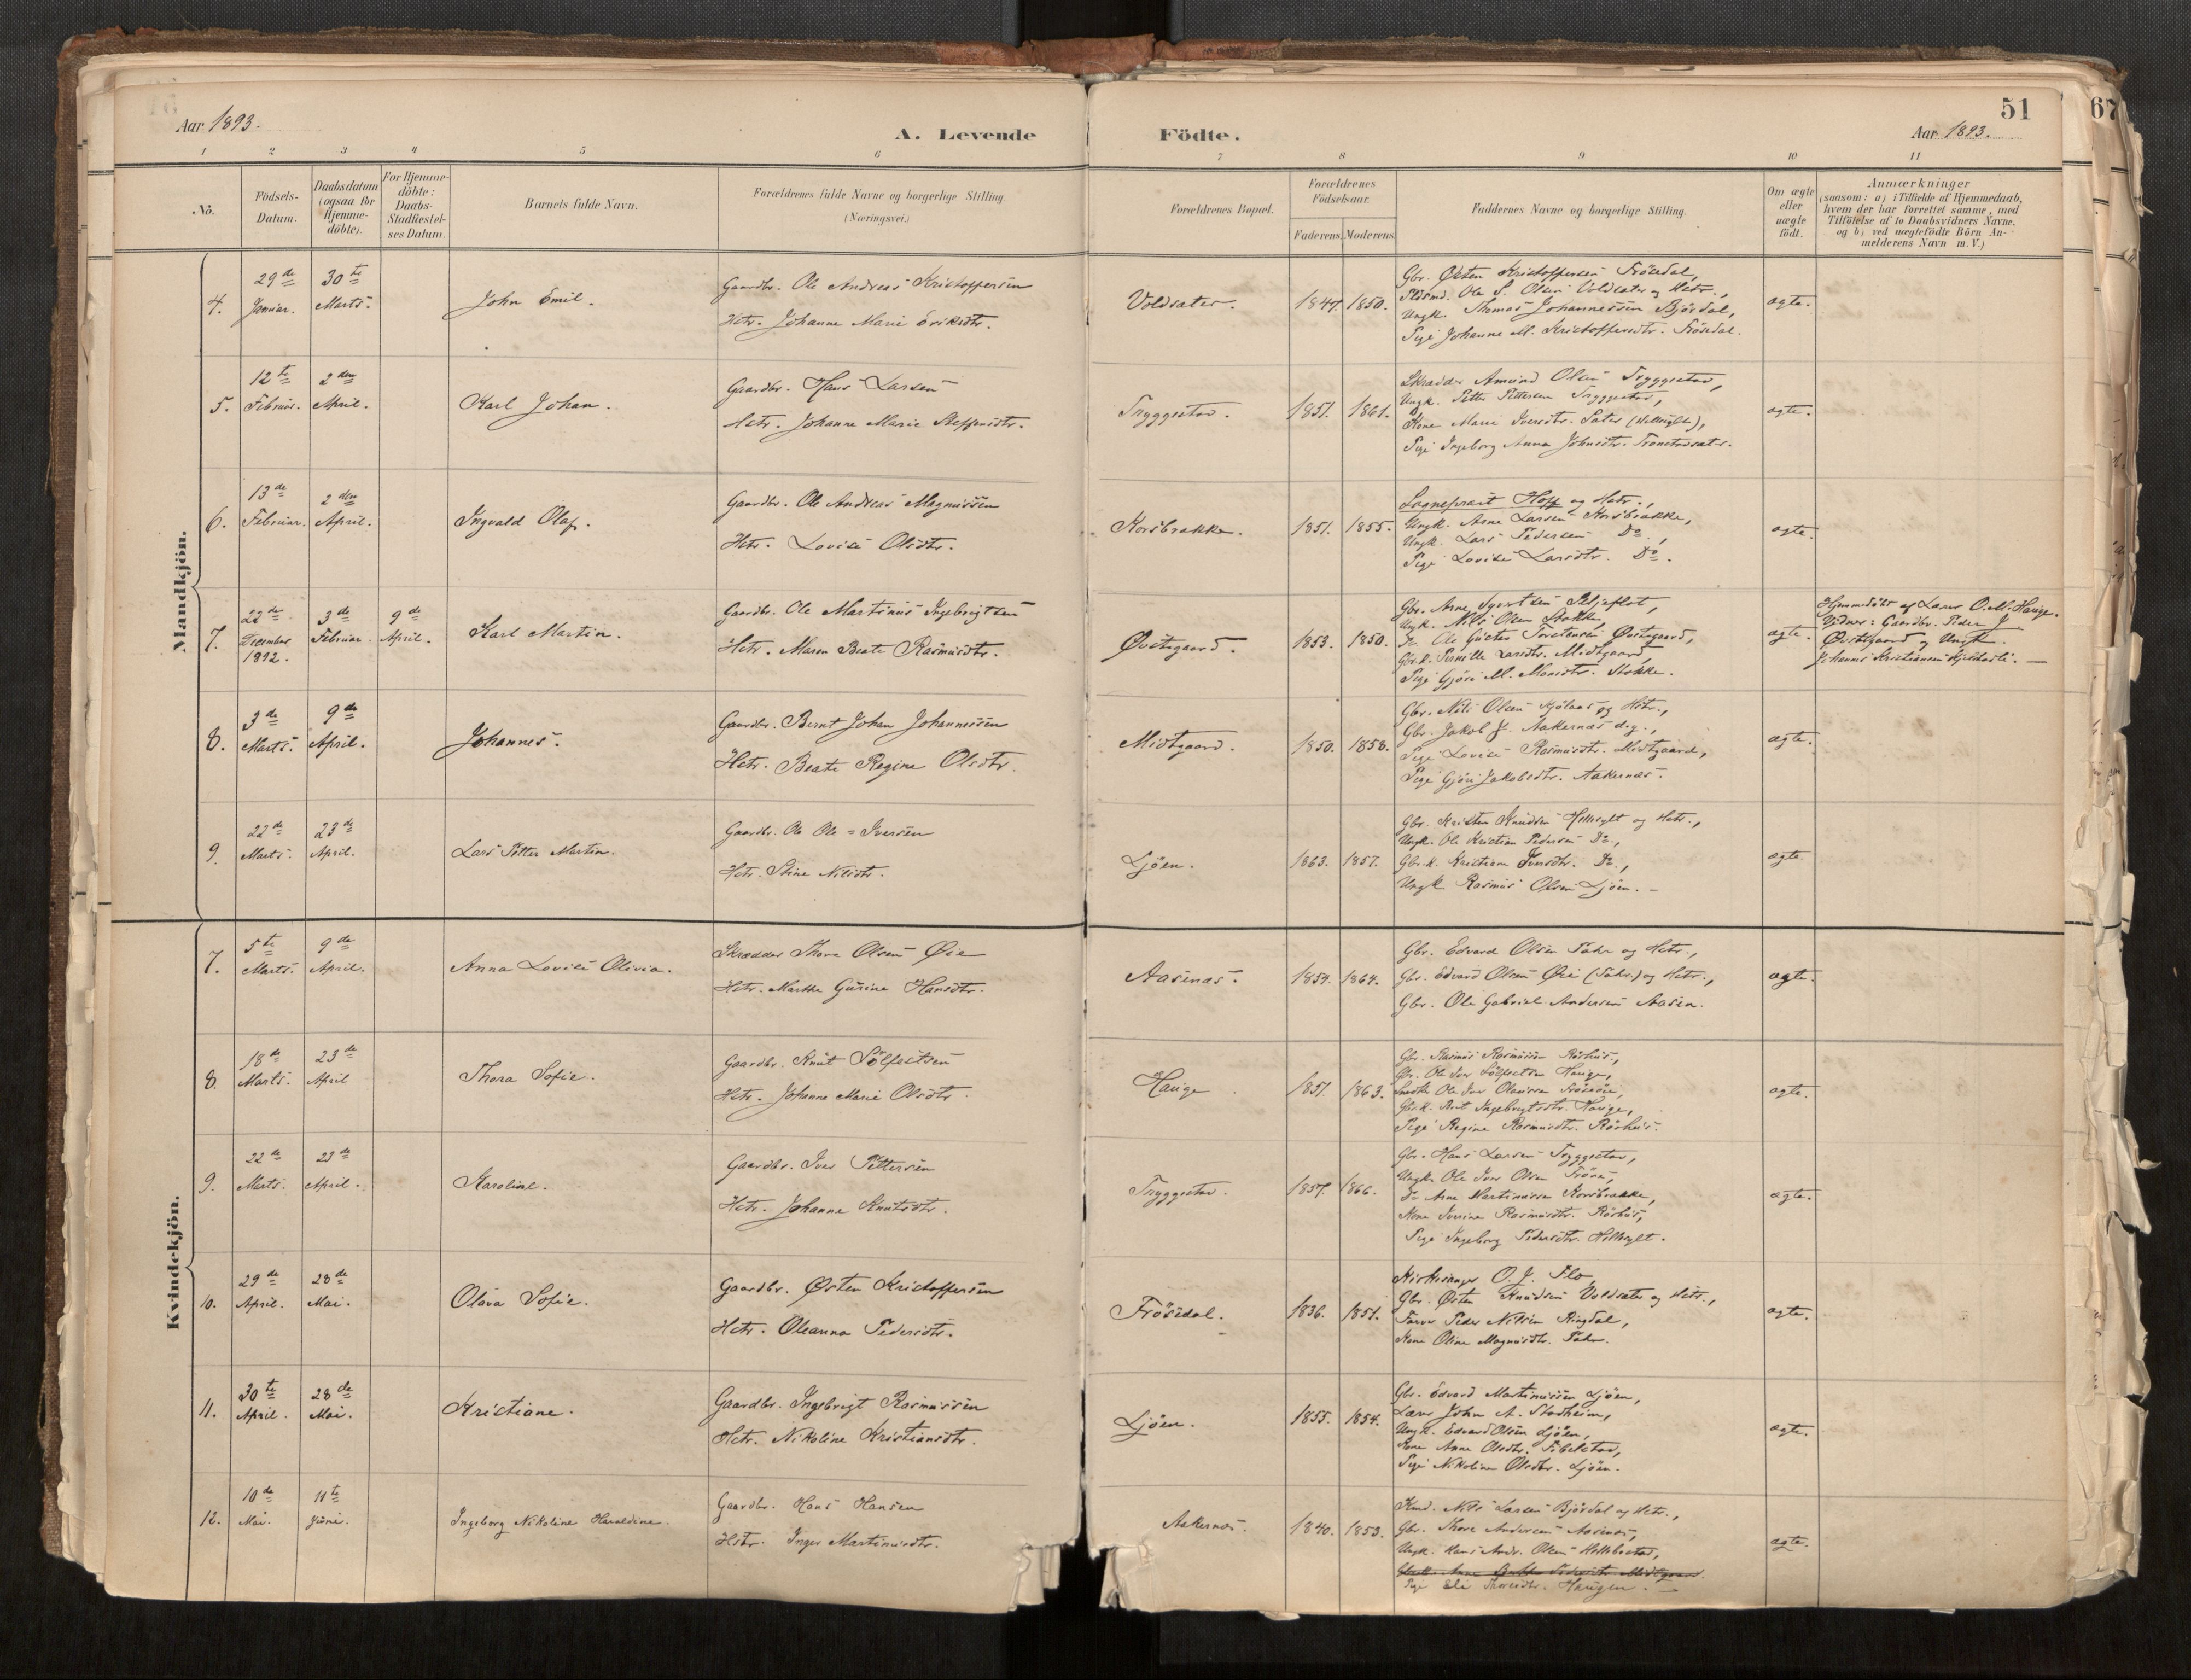 Aar 1893.
A. Levende Födte.
51
67
Aar 1893.
1 2 3 4 5 6 7 8 9 10 11
No.
Födsels-Datum.
Daabsdatum (ogsaa for Hjemme-döbte).
For Hjemme-döbte: Daabs-Stadfæstel-ses Datum.
Barnets fulde Navn.
Forældrenes fulde Navne og borgerlige Stilling.
(Næringsvei.)
Forældrenes Bopæl.
Forældrenes Födselsaar.
Faderens. Moderens.
Faddernes Navne og borgerlige Stilling.
Om ægte eller uægte födt.
Anmærkninger
(saasom: a) i Tilfælde af Hjemmedaab,
hvem der har forrettet samme, med
Tilföielse af to Daabsvidners Navne.
og b) ved uægtefödte Börn An-
melderens Navn m.V.)
Mandkjön.
4. 29de Januar. 30te Marts.
John Emil.
Gaardbr. Ole Andreas Kristoffersen
Hstr. Johanne Marie Eriksdtr.
Voldsæter. 1847. 1850.
Gbr. Østen Kristoffersen Frösdal,
Ole S. Olsen Voldsæter og Hstr.,
Ungk. Thomas Johannessen Bjørdal,
Pige Johanne M. Kristoffersdtr. Frösdal.
ægte.
5. 12te Februar. 2den April.
Karl Johan.
Gaardbr. Hans Larsen
Hstr. Johanne Marie Steffensdtr.
Tryggestad. 1851. 1861.
Skrædder Amund Olsen Tryggestad,
Ungk. Petter Pettersen Tryggestad,
Kone Marie Iversdtr. Sæter (Hellesylt),
Pige Ingeborg Anna Johnsdtr. Tronstadsæter.
ægte.
6. 13de Februar. 2den April.
Ingvald Olaf.
Gaardbr. Ole Andreas Magnussen
Hstr. Lovise Olsdtr.
Korsbrække. 1851. 1855.
Sognepræst Hoff og Hstr.,
Ungk. Arne Larsen Korsbrække,
Ungk. Lars Pedersen Do.,
Pige Lovise Larsdtr. Do.
ægte.
7. 22de December 1892. 3de Februar. 9de April.
Karl Martin.
Gaardbr. Ole Martinus Ingebrigtsen
Hstr. Maren Beate Rasmusdtr.
Østsgaard. 1853. 1850.
Gbr. Arne Syvertsen
Ungk. Nils Olsen Stokke,
Do. Ole Gusten Østsgaard,
Gbr.k. Pernille Larsdtr. Midtgaard
Pige Gjøri M. Monsdtr. Stokke.
ægte.
Hjemmedöbt af Lærer O. M. Hauge.
Vidner: Gaardbr. Peder J.
Østsgaard og Ungk.
Johannes Kristiansen
8. 3de Marts. 9de April.
Johannes.
Gaardbr. Bernt Johan Johannessen
Hstr. Beate Regine Olsdtr.
Midtgaard. 1850. 1858.
Gbr. Nils Olsen Kjølaas og Hstr.,
Gbr. Jakob J. Aakernæs d.y.,
Pige Lovise Rasmusdtr. Midtgaard,
Pige Gjøri Jakobsdtr. Aakernæs.
ægte.
9. 22de Marts. 23de April.
Lars Petter Martin.
Gaardbr. Ole Ole=Iversen
Hstr. Stine Nilsdtr.
Ljøen. 1863. 1857.
Gbr. Kristen Knudsen Hellesylt og Hstr.,
Ungk. Ole Kristian Pedersen Do.,
Gbr.k. Kristiane Iversdtr. Do.,
Ungk. Rasmus Olsen Ljøen.
ægte.
Kvindekjön.
7. 5te Marts. 9de April.
Anna Lovise Olivia.
Skrædder Thore Olsen Øie
Hstr. Marthe Gurine Hansdtr.
Aasenæs. 1854. 1864.
Gbr. Edvard Olsen Tahr og Hstr.,
Gbr. Edvard Olsen Øie (Tahr.) og Hstr.,
Gbr. Ole Gabriel Andersen Aasen.
ægte.
8. 18de Marts. 23de April
Thora Sofie.
Gaardbr. Knut Sölfestsen
Hstr. Johanne Marie Olsdtr.
Hauge. 1851. 1863.
Gbr. Rasmus Rasmussen Rørhus,
Gbr. Ole Iver Sölfestsen Hauge,
Ole Iver Olaussen Frösöie,
Gbr.k. Berit Ingebrigtsdtr. Hauge,
Pige Regine Rasmusdtr. Rørhus.
ægte.
9. 22de Marts. 23de April.
Karoline.
Gaardbr. Iver Pettersen
Hstr. Johanne Knutsdtr.
Tryggestad. 1857. 1866.
Gbr. Hans Larsen Tryggestad,
Ungk. Ole Iver Olsen
Do. Arne Martinussen Korsbrække,
Kone Iverine Rasmusdtr. Rørhus,
Pige Ingeborg Pedersdtr. Hellesylt.
ægte.
10. 29de April. 28de Mai.
Olava Sofie.
Gaardbr. Østen Kristoffersen
Hstr. Oleanna Pedersdtr.
Frösdal. 1836. 1851.
Kirkesanger O. J. Flo,
Gbr. Østen Knudsen Voldsæter og Hstr.,
Farver Peder Nilsen Ringdal,
Kone Oline Magnusdtr. Tahr.
ægte.
11. 30te April. 28de Mai.
Kristiane.
Gaardbr. Ingebrigt Rasmussen
Hstr. Nikoline Kristiansdtr.
Ljøen. 1855. 1854.
Gbr. Edvard Martinussen Ljøen,
Lærer John A. Stadheim,
Ungk. Edvard Olsen Ljøen,
Kone Anne Olsdtr. Tibelstad,
Pige Nikoline Olsdtr. Ljøen.
ægte.
12. 10de Mai. 11te Juni.
Ingeborg Nikoline Haraldine.
Gaardbr. Hans Hansen
Hstr. Inger Martinusdtr.
Aakernæs. 1840. 1853.
Nils Larsen Bjørdal og Hstr.,
Gbr. Thore Andersen Aasenæs,
Ungk. Hans Andr. Olsen Hellebostad,
Pige Eli Thoresdtr. Haugen.
ægte.